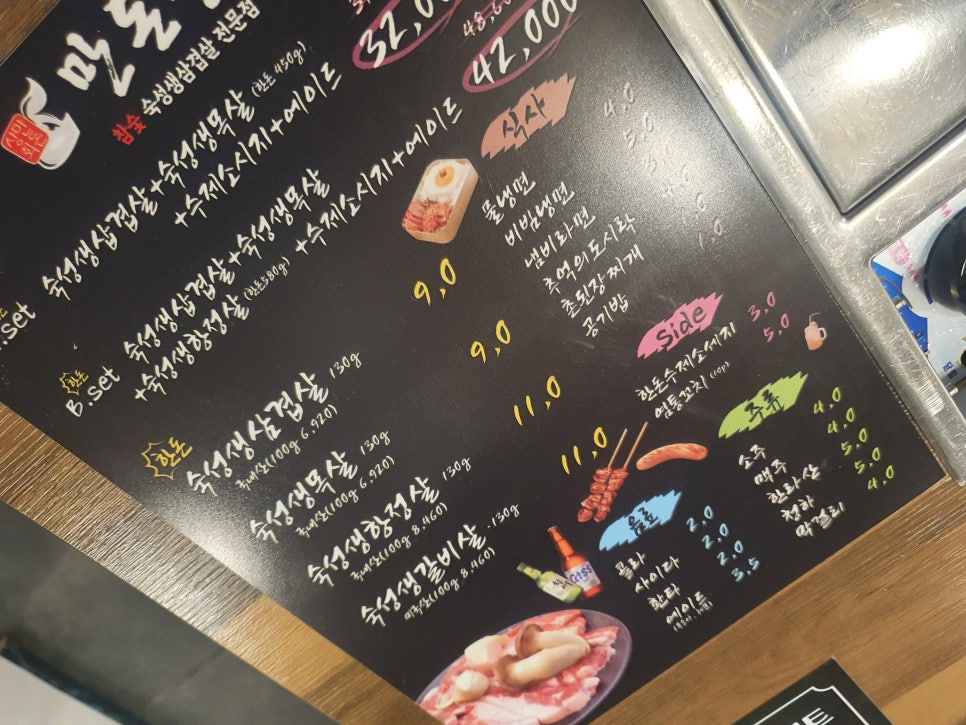 숙성생삼겹살 전문점
참숯
32,0
42,000
숙성생삼겹살+숙성생목살 (한돈 450g)
+수제소시지+에이드
B.set
한돈
숙성생삼겹살+숙성생목살
+숙성생항정살 (한돈580g) +수제소시지+에이드
한돈
숙성생삼겹살 130g 9,0
국내산(100g 6,920)
숙성생목살 130g 9,0
국내산(100g 6,920)
숙성생항정살 130g 11,0
국내산(100g 8,460)
숙성생갈비살 130g 11,0
미국산(100g 8,460)
식사
물냉면 4,0
비빔냉면 5,0
냄비라면
추억의도시락
촌된장찌개
공기밥 1,0
Side
한돈수제소세지 3,0
염통꼬치 (10p) 5,0
주류
소주 4,0
맥주 4,0
한라산 5,0
청하 5,0
막걸리 4,0
음료
콜라 2,0
사이다 2,0
환타 2,0
에이드 3,5